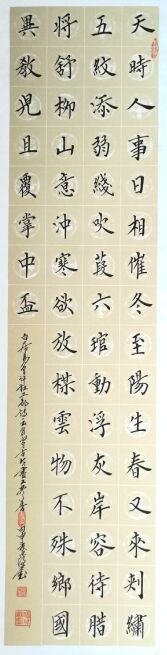 天時人事日相催冬至陽生春又來刺繡
五紋添弱綫吹葭六琯動浮灰岸容待腊
將舒柳山意沖寒欲放楳雲物不殊鄉國
異教兒且覆掌中盃